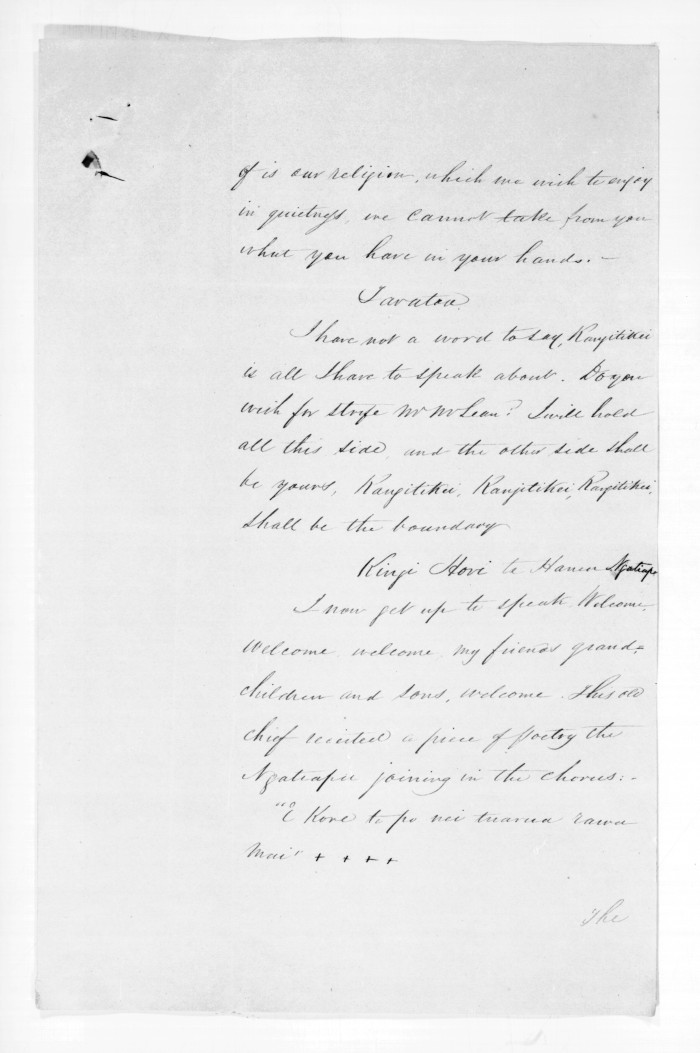 of is our religion, which we wish to enjoy
in quietness, we cannot take from you
what you have in your hands. –
Taratoa.
I have not a word to say, Rangitikei
is all I have to speak about. Do you
wish for strife Mr McLean? I will hold
all this side, and the other side shall
be yours, Rangitikei, Rangitikei, Rangitikei,
shall be the boundary
Kingi Hori te Hanea Ngatiapa
I now get up to speak. Welcome,
welcome, welcome, my friends grand=
children and sons, welcome. This old
chief recited a piece of poetry the
Ngatiapa joining in the chorus: -
"E Kore te po nei
mai + + + +
The